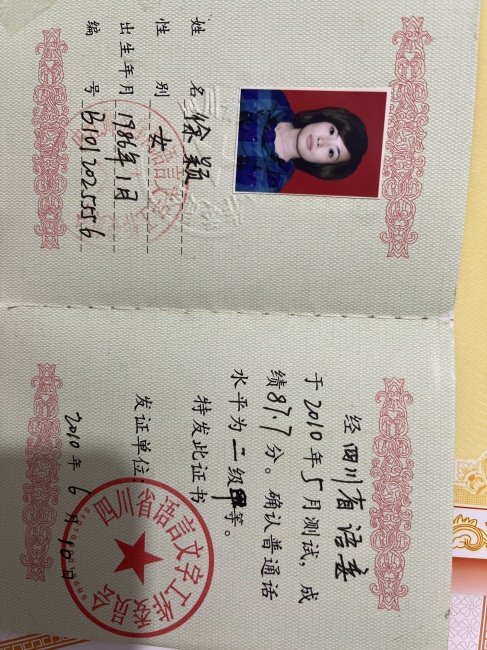 姓 名 徐颖
性 别 女
出生年月 1986年1月
编 号 B101202555 6
经四川省语委
于2010年5月测试,成
绩87.7分。确认普通话
水平为二级甲等。
特发此证书
发证单位:
四川省语言文字工作委员会
2010年6月10日